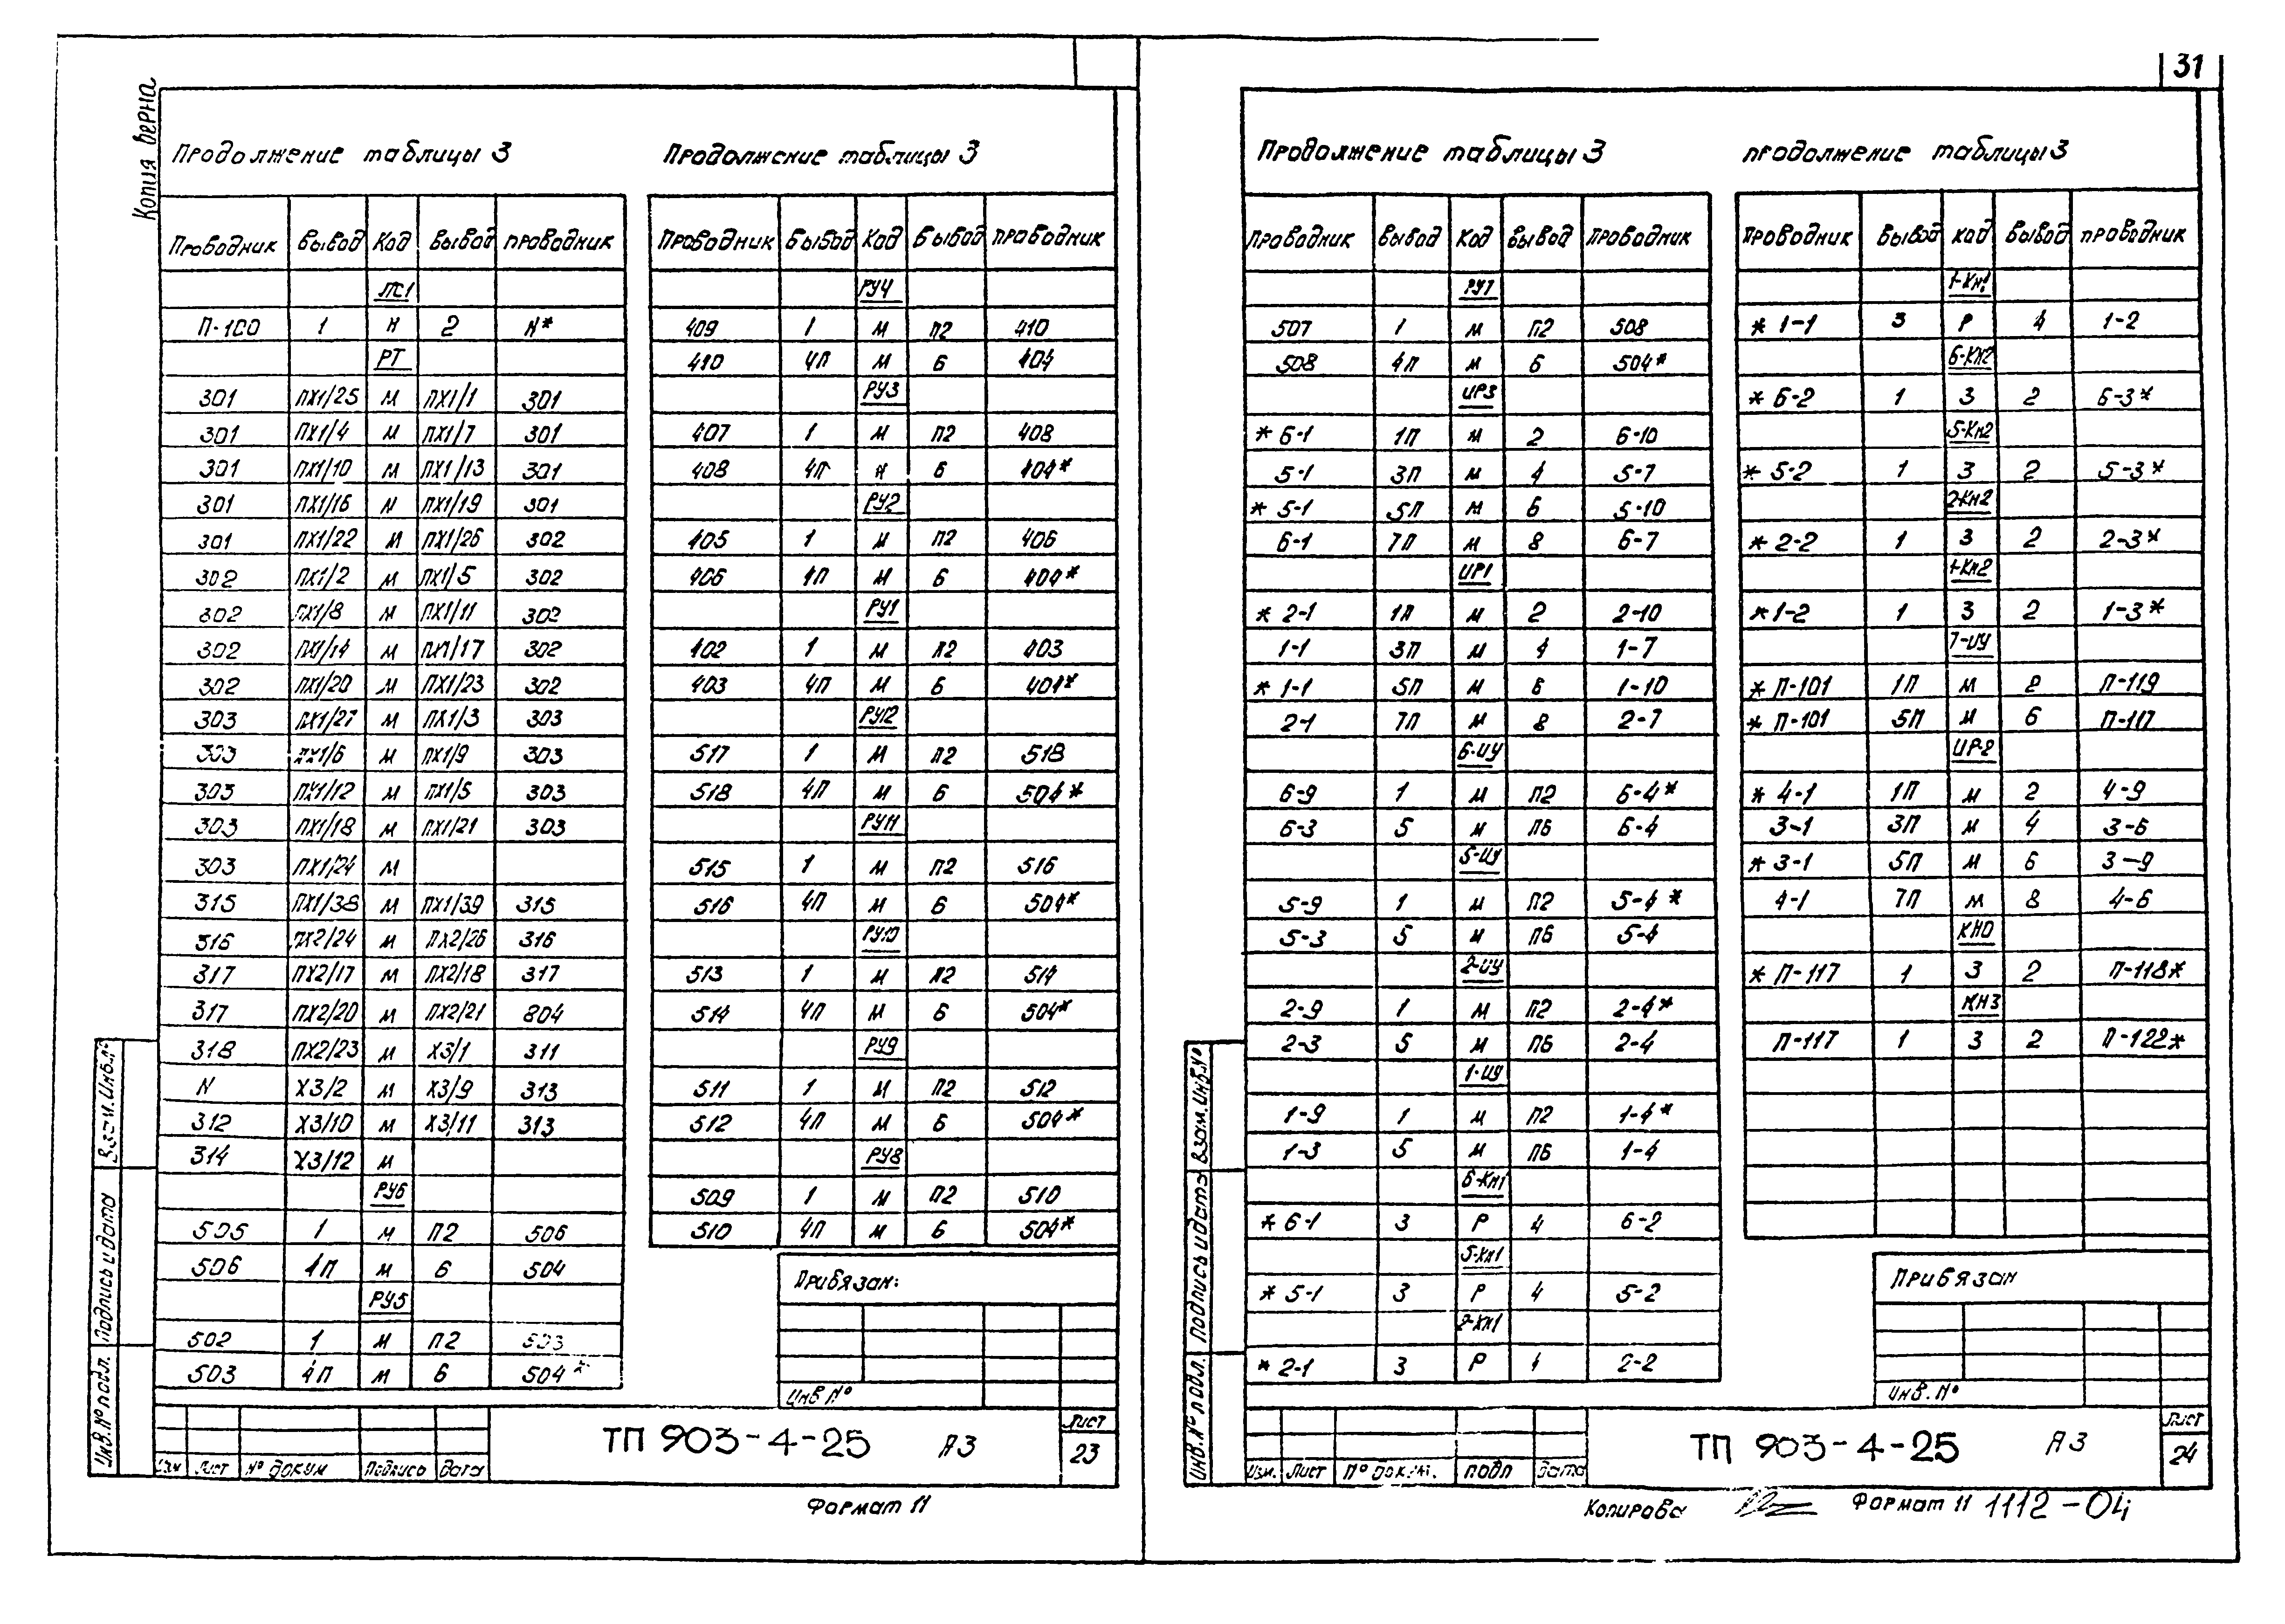 31
Копия верна
Продолжение таблицы 3
Проводник Вывод Код Вывод Проводник
ЛС1
П-100 1 Н 2 N*
РТ
301 ПХ1/25 М ПХ1/1 301
301 ПХ1/4 М ПХ1/7 301
301 ПХ1/10 М ПХ1/13 301
301 ПХ1/16 М ПХ1/19 301
301 ПХ1/22 М ПХ1/26 302
302 ПХ1/2 М ПХ1/5 302
302 ПХ1/8 М ПХ1/11 302
302 ПХ1/14 М ПХ1/17 302
302 ПХ1/20 М ПХ1/23 302
303 ПХ1/27 М ПХ1/3 303
303 ПХ1/6 М ПХ1/9 303
303 ПХ1/12 М ПХ1/5 303
303 ПХ1/18 М ПХ1/21 303
303 ПХ1/24 М
315 ПХ1/38 М ПХ1/39 315
316 ПХ2/24 М ПХ2/26 316
317 ПХ2/17 М ПХ2/18 317
317 ПХ2/20 М ПХ2/21 804
318 ПХ2/23 М Х3/1 311
N Х3/2 М Х3/9 313
312 Х3/10 М Х3/11 313
314 Х3/12 М
РУ6
505 1 М П2 506
506 4П М 6 504
РУ5
502 1 М П2 503
503 4П М 6 504*
Продолжение таблицы 3
Проводник Вывод Код Вывод Проводник
РУ4
409 1 М П2 410
410 4П М 6 404
РУ3
407 1 М П2 408
408 4П М 6 404*
РУ2
405 1 М П2 406
406 4П М 6 404*
РУ1
402 1 М П2 403
403 4П М 6 401*
РУ12
517 1 М П2 518
518 4П М 6 504*
РУ11
515 1 М П2 516
516 4П М 6 504*
РУ10
513 1 М П2 514
514 4П М 6 504*
РУ9
511 1 М П2 512
512 4П М 6 504*
РУ8
509 1 М П2 510
510 4П М 6 504*
Привязан:
Инв №
Взам. Инв.№
Подпись и дата
Инв. № подл.
Изм Лист № докум Подпись Дата
ТП 903-4-25 А3
Лист
23
Формат 11
Продолжение таблицы 3
Проводник Вывод Код Вывод Проводник
РУ7
507 1 М П2 508
508 4П М 6 504*
ИР3
* 6-1 1П М 2 6-10
5-1 3П М 4 5-7
* 5-1 5П М 6 5-10
6-1 7П М 8 6-7
ИР1
* 2-1 1П М 2 2-10
1-1 3П М 4 1-7
* 1-1 5П М 6 1-10
2-1 7П М 8 2-7
6-ИУ
6-9 1 М П2 6-4*
6-3 5 М П6 6-4
5-ИУ
5-9 1 М П2 5-4*
5-3 5 М П6 5-4
2-ИУ
2-9 1 М П2 2-4*
2-3 5 М П6 2-4
1-ИУ
1-9 1 М П2 1-4*
1-3 5 М П6 1-4
6-Кн1
* 6-1 3 Р 4 6-2
5-Кн1
* 5-1 3 Р 4 5-2
2-Кн1
* 2-1 3 Р 4 2-2
Продолжение таблицы 3
Проводник Вывод Код Вывод Проводник
1-Кн1
* 1-1 3 Р 4 1-2
6-Кн2
* 6-2 1 З 2 6-3*
5-Кн2
* 5-2 1 З 2 5-3*
2-Кн2
* 2-2 1 З 2 2-3*
1-Кн2
* 1-2 1 З 2 1-3*
7-ИУ
* П-101 1П М 2 П-119
* П-101 5П М 6 П-117
ИР-2
* 4-1 1П М 2 4-9
3-1 3П М 4 3-6
* 3-1 5П М 6 3-9
4-1 7П М 8 4-6
КНО
* П-117 1 З 2 П-118*
КНЗ
П-117 1 З 2 П-122*
Привязан
Инв. №
Взам. Инв.№
Подпись и дата
Инв. № подл.
Изм. Лист № док.м. Подп Дата
ТП 903-4-25 А3
Лист
24
Копирова Формат 11 1112-04